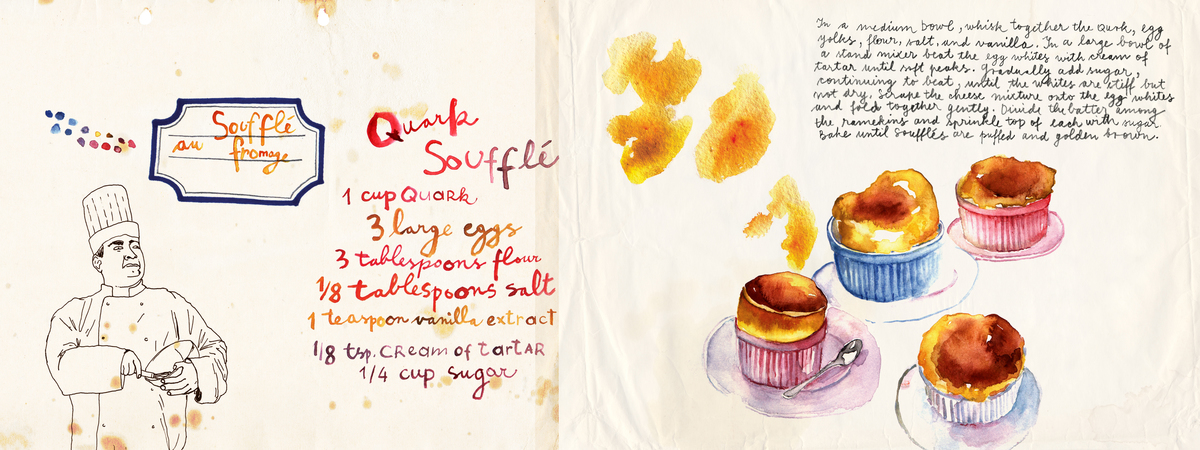 Soufflé
au fromage
Quark
Soufflé
1 cup Quark
3 large eggs
3 tablespoons flour
1/8 tablespoons salt
1 teaspoon vanilla extract
1/8 tsp. CReam of tartAR
1/4 cup sugar
In a medium bowl, whisk together the Quok, egg
yolks, flour, salt, and vanilla. In a large bowl of
a stand mixer beat the egg whites with cream of
tartar until soft peaks. Gradually add sugar,
continuing to beat, until the whites are stiff but
not dry. Scrape the cheese mixture onto the egg whites
and fold together gently. Divide the batter among
the ramekins and sprinkle top of each with sugar.
Bake until soufflés are puffed and golden brown.